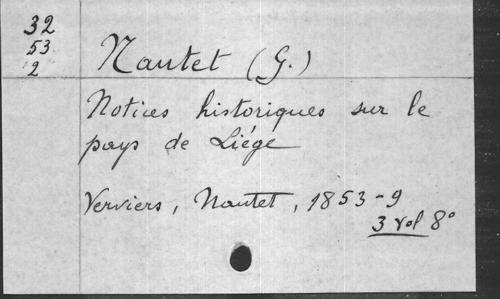 32
53
2
Nautet (G.)
Notices historiques sur le
pays de Liége
Verviers, Nautet, 1853-9
3 vol 8°